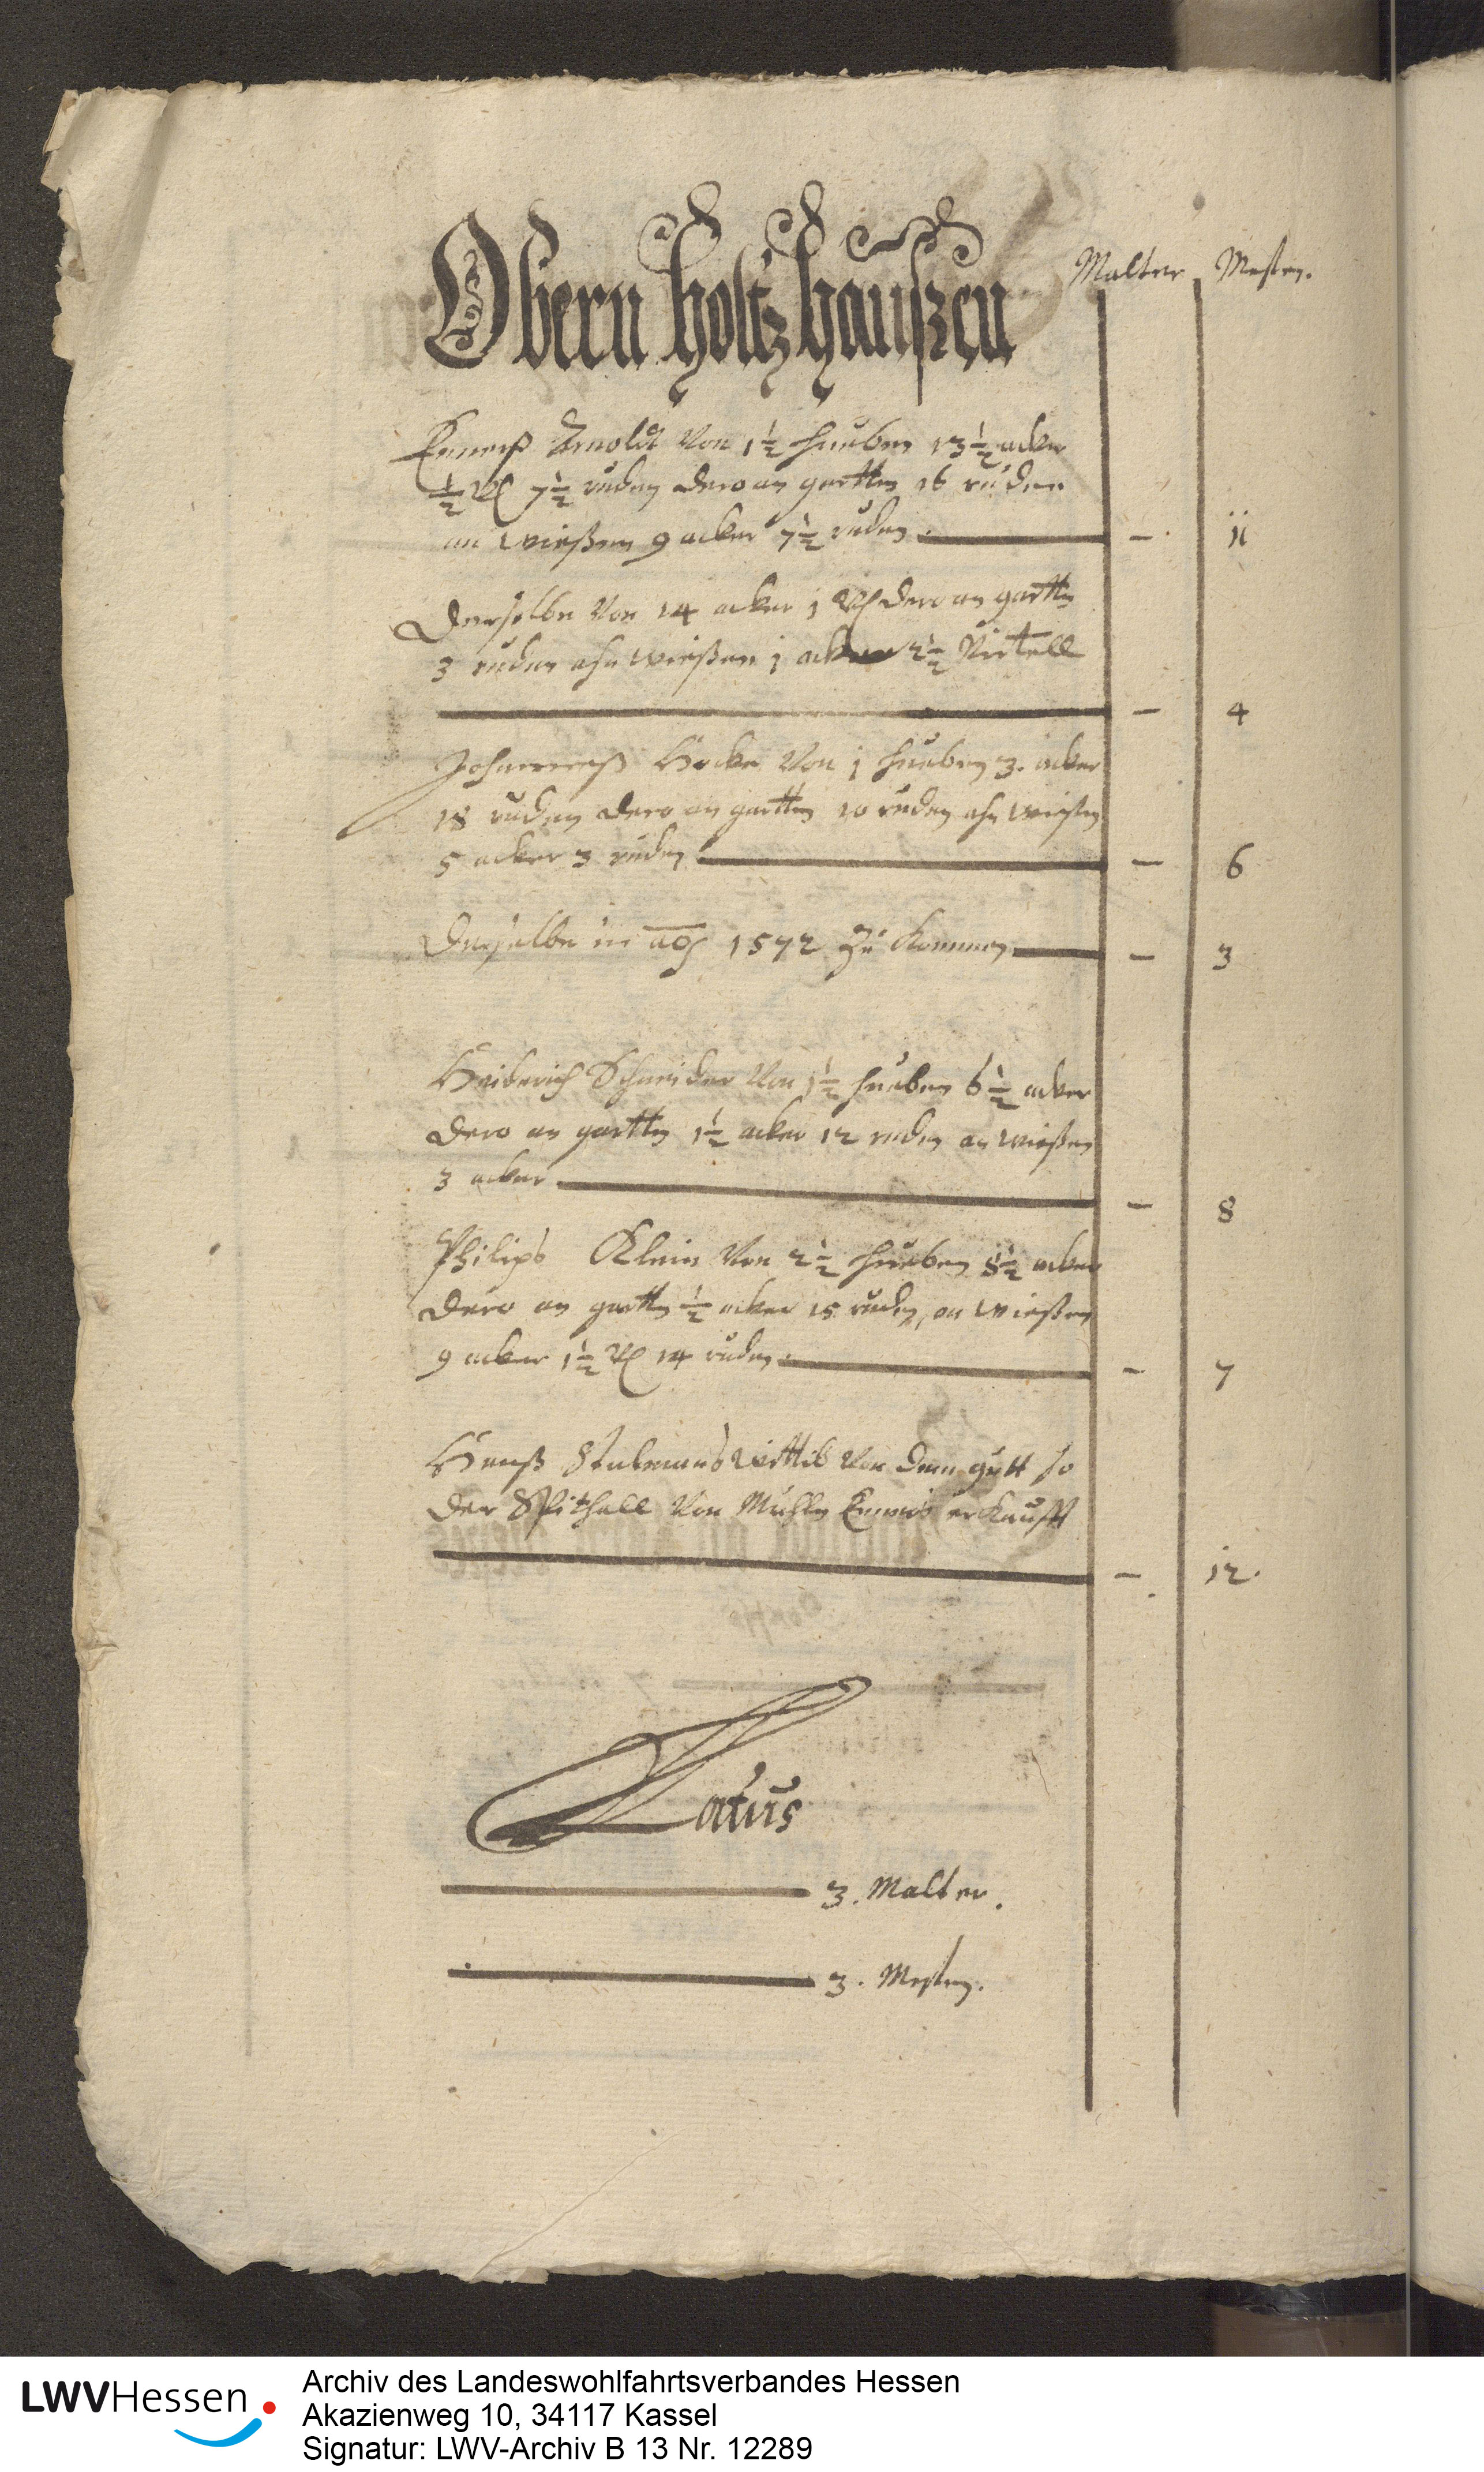 Malter Mesten.
Obern holtzhaußen
Henrß Arnoldt Von 1½ huben 13½ acker
½ Vl 7½ ruden dero an gartten 16 ruden
an wießen 9 acker 7½ ruden — 11
Derselbe Von 14 acker 1 Vl dero an gartten
3 ruden ahn wießen 1 acker 2½ Virtell
— 4
Johanneß Von 1 huben 3. acker
18 ruden dero an gartten 10 ruden ahn wießen
5 acker 3 ruden — 6
Derselbe in ao 1572 zu kommen — 3
Heiderich Schneider Von 1½ huben 6½ acker
dero an gartten 1½ acker 12 ruden an wießen
3 acker — 8
Philips Klein Von 2½ huben 8½ acker
dero an gartten ½ acker 15 ruden, an wießen
9 acker 1½ Vl 14 ruden — 7
Henß wittib Von dem gutt so
der Spithall Von erkaufft
— 12.
Latus
3. Malter.
3. Mesten.
LWVHessen
Archiv des Landeswohlfahrtsverbandes Hessen
Akazienweg 10, 34117 Kassel
Signatur: LWV-Archiv B 13 Nr. 12289